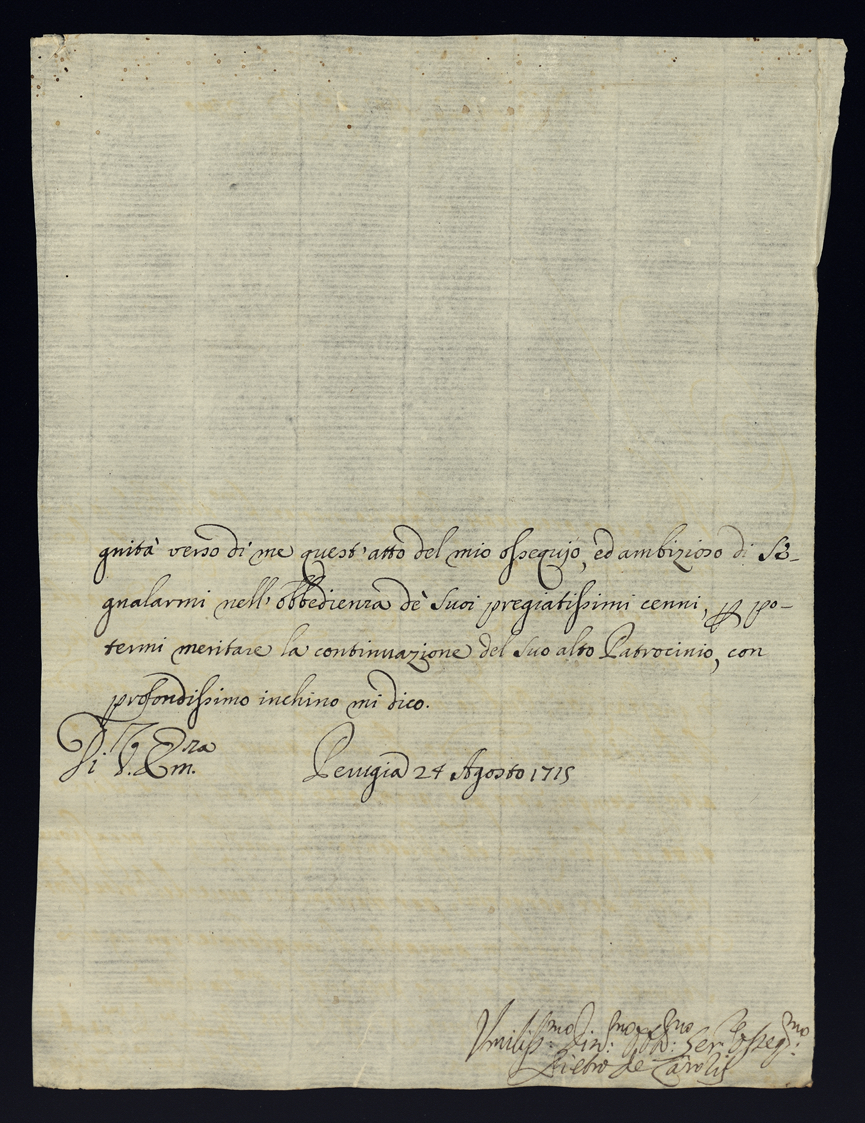 gnità verso di me quest'atto del mio ossequio, ed ambizioso di Se-
gnalarmi nell'obbedienza de' suoi pregiatissimi cenni, per po-
termi meritare la continuazione del suo alto Patrocinio, con
profondissimo inchino mi dico.
Di V. Em.za Perugia 24 Agosto 1715
Umiliss.mo Div.mo Obb.mo Ser. Osseq.mo
Pietro de Carolis